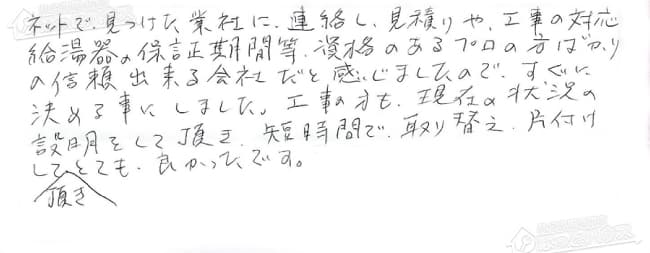 ネットで、見つけた業社に、連絡し、見積りや、工事の対応
給湯器の保証正期間等、資格のあるプロの方ばかり
の信頼出来る会社だと感じましたので、すぐに
決める事にしました。工事の方も、現在の状況の
説明をして頂き、短時間で、取り替え、片付け
してとても、良かったです。
頂き